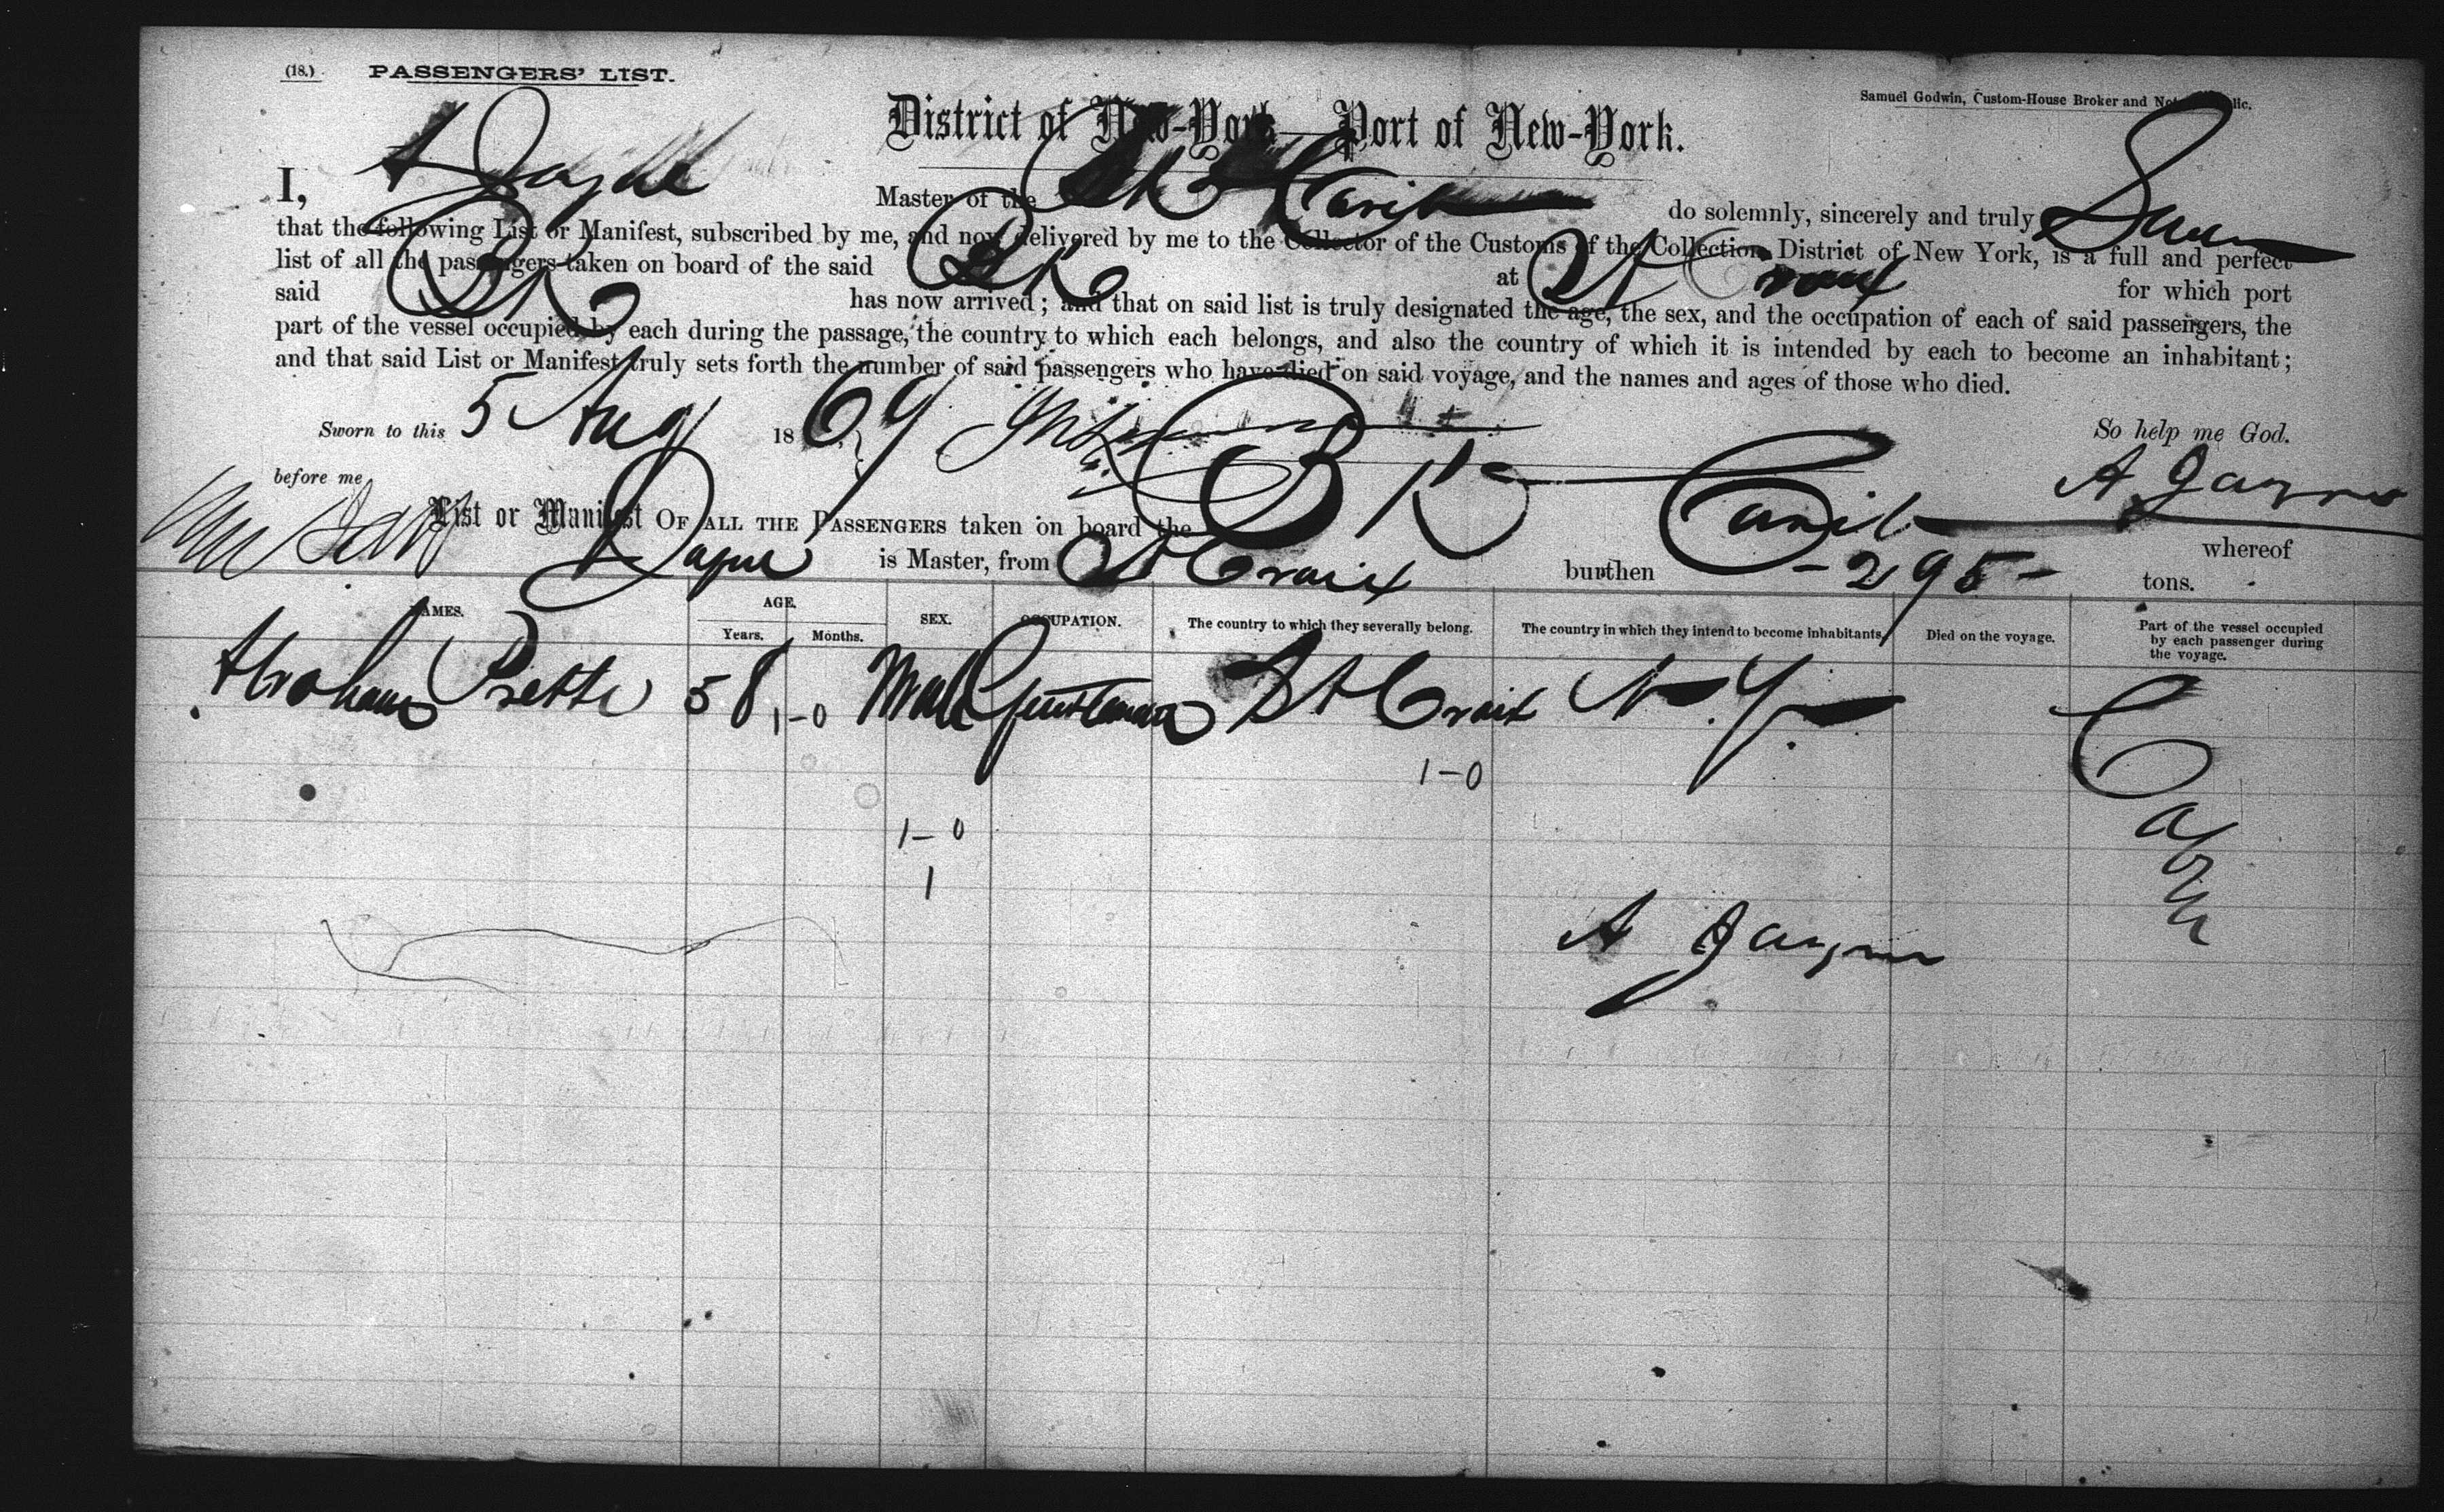 (18.) PASSENGERS' LIST.
Samuel Godwin, Custom-House Broker and
District of New-York— Port of New-York.
I, A Master of the do solemnly, sincerely and truly Swear
that the following List or Manifest, subscribed by me, and now delivered by me to the Collector of the Customs of the Collection District of New York, is a full and perfect
list of all the passengers taken on board of the said Bk at St Croix for which port
said Bk has now arrived; and that on said list is truly designated the age, the sex, and the occupation of each of said passengers, the
part of the vessel occupied by each during the passage, the country to which each belongs, and also the country of which it is intended by each to become an inhabitant;
and that said List or Manifest truly sets forth the number of said passengers who have died on said voyage, and the names and ages of those who died.
Sworn to this 5 Aug 1869 So help me God.
before me A
List or Manifest OF ALL THE PASSENGERS taken on board the Bk whereof
is Master, from St Croix burthen -295- tons.
NAMES. AGE. SEX. OCCUPATION. The country to which they severally belong. The country in which they intend to become inhabitants. Died on the voyage. Part of the vessel occupied by each passenger during the voyage.
Years. Months.
Abraham 58 1-0 Male Gentleman St Croix N.Y. Cabin
1-0
1-0
1
A